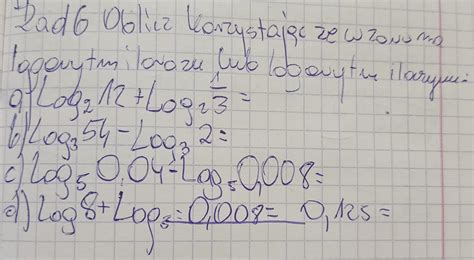 Zad6 Oblicz korzystając ze wzoru na
logarytm ilorazu lub logarytm ilorazu:
a) Log₂12 + Log₂ 1/3 =
b) Log₃54 - Log₃ 2 =
c) Log₅ 0,04 - Log₅ 0,008 =
d) Log 8 + Log₅ = 0,008 = 0,125 =